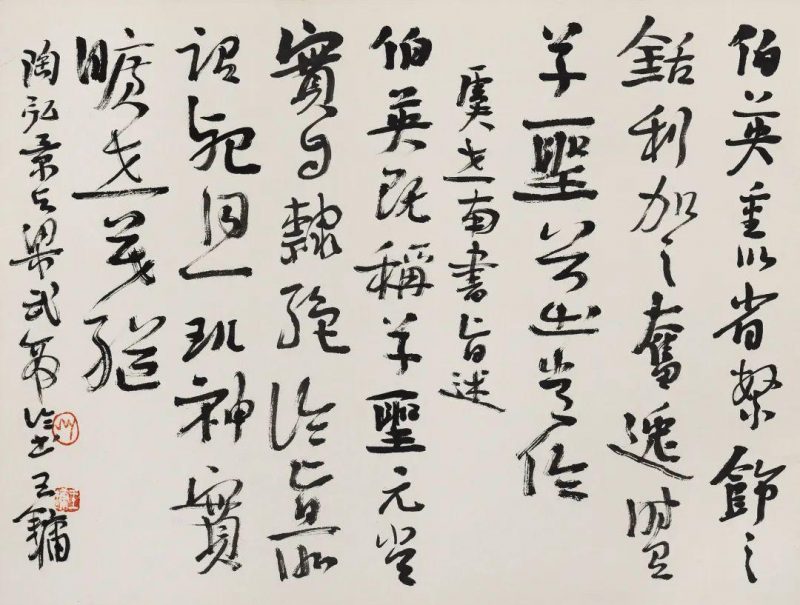 伯英重以省繁飾之
銛利加之奮逸時言
草聖首出常倫
虞世南書旨述
伯英既稱草聖元常
實自隸絕論旨所
謂殆同璣神寶
曠世莫繼
陶弘景與梁武帝論書 王鏞